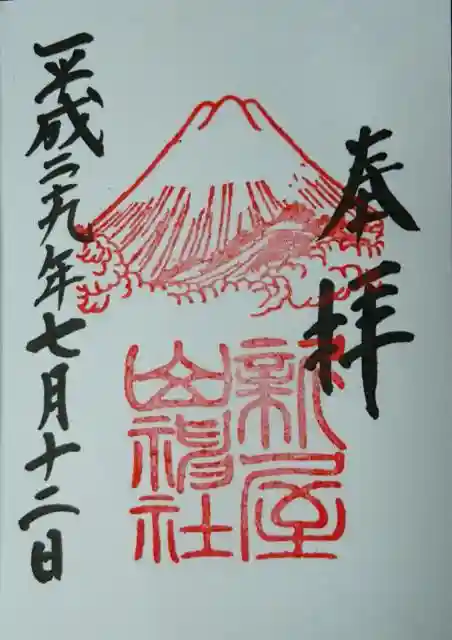 奉拝
新屋
山神社
平成二十九年七月十二日